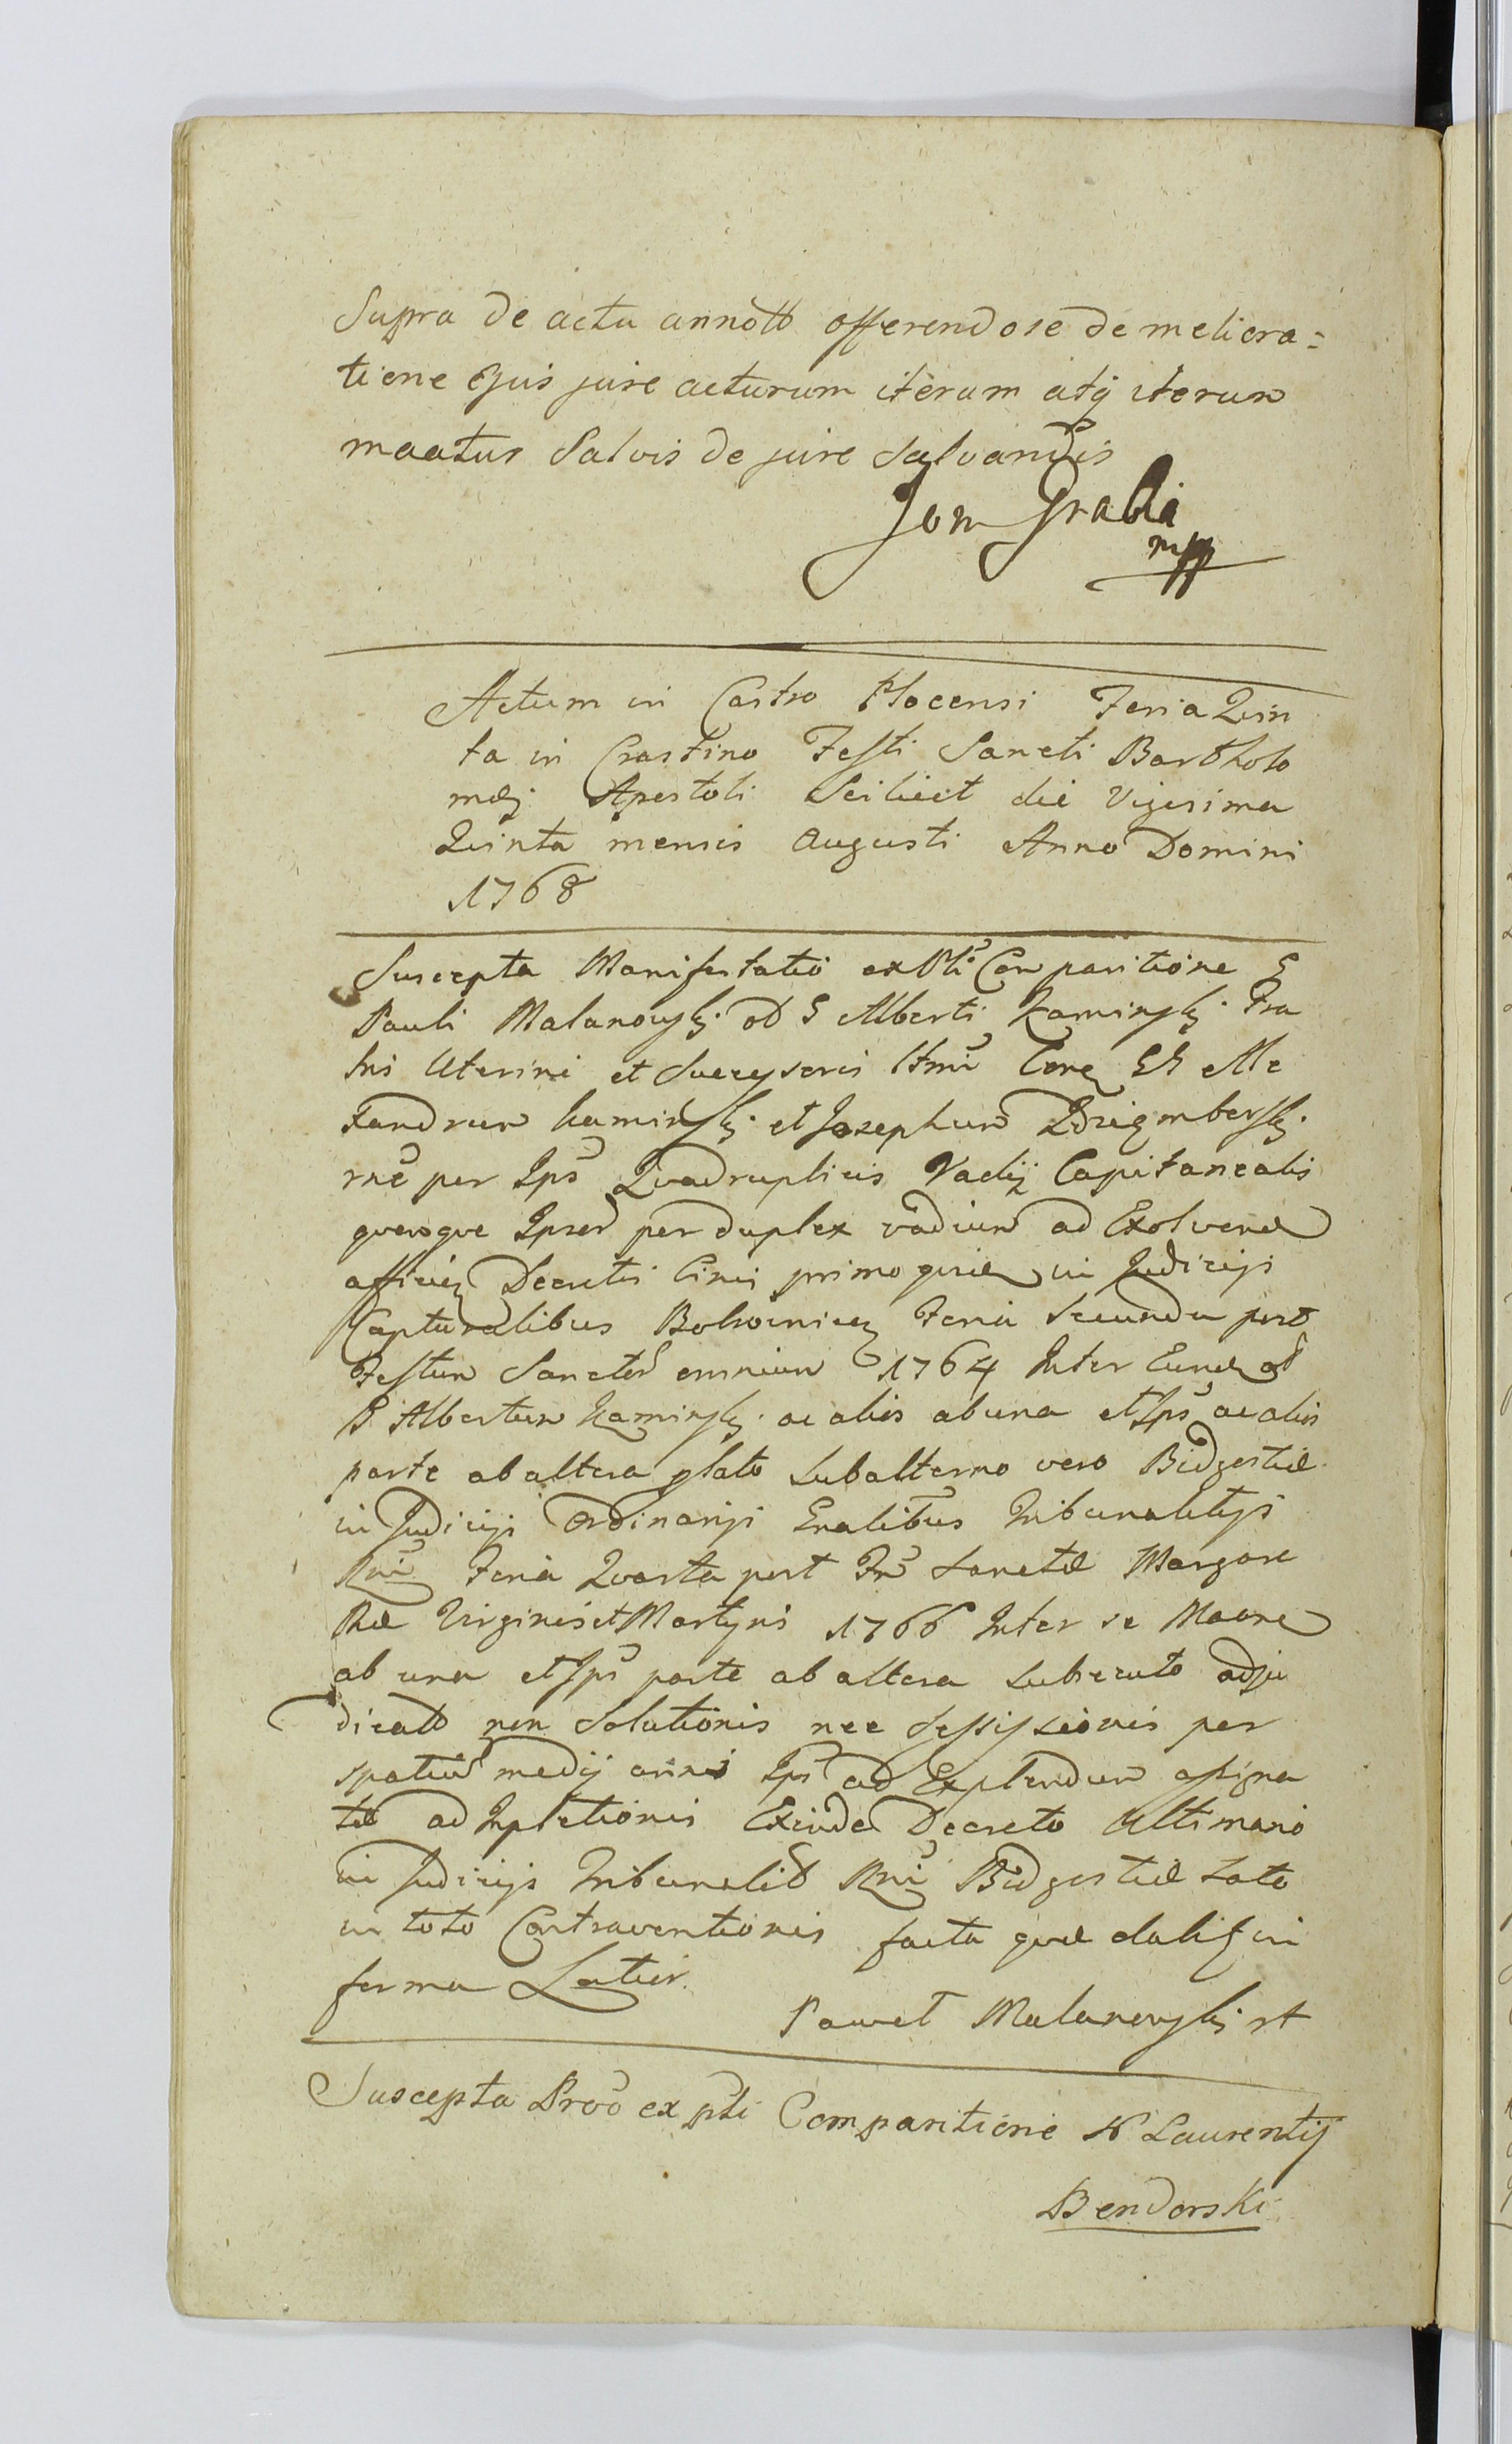 Supra de actu annott offerendo se de meliora=
tione ejus jure acturum iterum atq iterum
maatur Salvis de jure Salvandis
Jan Grabia
mpp
Actum in Castro Plocensi Feria Quin
ta in Crastino Festi Sancti Bartholo
mæj Apostoli Scilicet die Vigesima
Quinta mensis Augusti Anno Domini
1768
Suscepta Manifestatio ex Comparitione G
Pauli Malanowskj od G Alberti Kaminskj Fra
tris Uterini et Successoris
xandrum Kaminskj et Josephum
rne per Ips Quadruplicis Vadij Capitanealis
quenque Ipsed per duplex vadium ad Exolvend
Decretis primo quid in Judicijs
Capturalibus Feria Secunda post
Festum Sanctor omnium 1764 Inter Eund od
G Albertum Kaminskj ac aliis ab una et Ips ac aliis
parte ab altera plato Subalterno vero Bidgostiæ
in Judicijs Ordinarijs Gnalibus Tribunalitijs
Rni Feria Quarta post Fm Sanctæ Margare
thæ Virginis et Martyris 1766 Inter se
ab una et Ips parte ab altera Subsecuto adju
dicatt non Solutionis nec per
spatium medij anni Ips ad Explendum assigna
tæ ad Inpletionis Exinde Decreto Ultimario
in Judicijs Tribunalib Rni Bidgostiæ Lato
in toto Contraventionis facta quæ dabit in
forma Latior.
Paweł Malanowskj
Suscepta Pro ex pti Comparitione N Laurentij
Bendorski